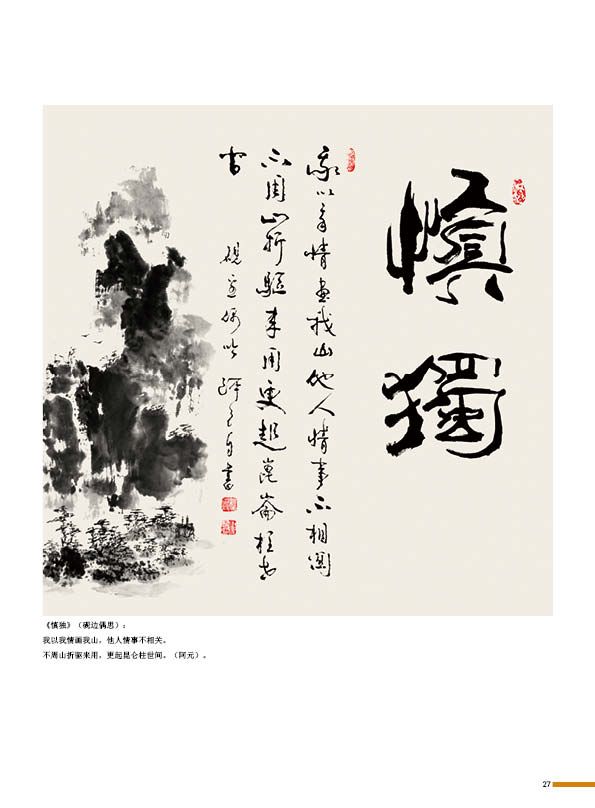 慎獨
我以吾情畫我山他人情事不相關
不周山折驅來用更起崑崙柱世
間
硯邊偶吟 自書
《慎独》（砚边偶思）：
我以我情画我山，他人情事不相关。
不周山折驱来用，更起昆仑柱世间。（阿元）。
27